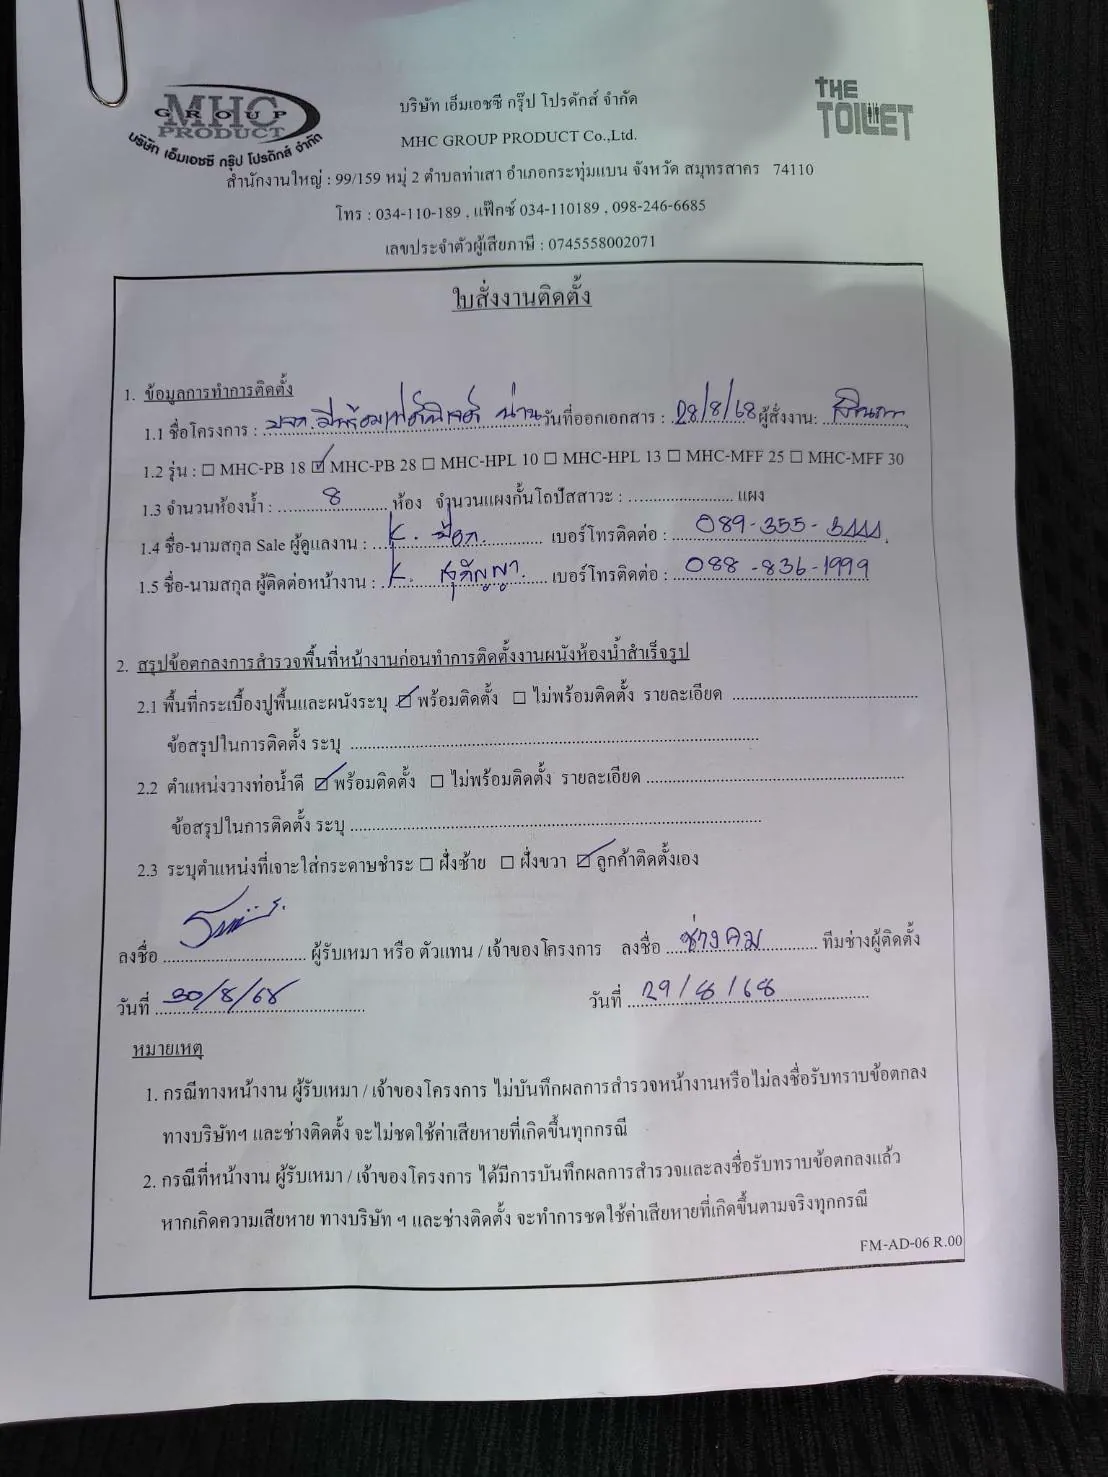 MHC
GROUP
PRODUCT
บริษัท เอ็มเอชซี กรุ๊ป โปรดักส์ จำกัด
THE
TOILET
บริษัท เอ็มเอชซี กรุ๊ป โปรดักส์ จำกัด
MHC GROUP PRODUCT Co.,Ltd.
สำนักงานใหญ่ : 99/159 หมู่ 2 ตำบลท่าเสา อำเภอกระทุ่มแบน จังหวัด สมุทรสาคร 74110
โทร : 034-110-189 , แฟ๊กซ์ 034-110189 , 098-246-6685
เลขประจำตัวผู้เสียภาษี : 0745558002071
ใบสั่งงานติดตั้ง
1. ข้อมูลการทำการติดตั้ง
1.1 ชื่อโครงการ : น่าน วันที่ออกเอกสาร : 28/8/68 ผู้สั่งงาน:
1.2 รุ่น : ☐ MHC-PB 18 ☑ MHC-PB 28 ☐ MHC-HPL 10 ☐ MHC-HPL 13 ☐ MHC-MFF 25 ☐ MHC-MFF 30
1.3 จำนวนห้องน้ำ : 8 ห้อง จำนวนแผงกั้นโถปัสสาวะ : ........................ แผง
1.4 ชื่อ-นามสกุล Sale ผู้ดูแลงาน : K. เบอร์โทรติดต่อ : 089-355-
1.5 ชื่อ-นามสกุล ผู้ติดต่อหน้างาน : K. สุกัญญา เบอร์โทรติดต่อ : 088-836-1999
2. สรุปข้อตกลงการสำรวจพื้นที่หน้างานก่อนทำการติดตั้งงานผนังห้องน้ำสำเร็จรูป
2.1 พื้นที่กระเบื้องปูพื้นและผนังระบุ ☑ พร้อมติดตั้ง ☐ ไม่พร้อมติดตั้ง รายละเอียด ........................................
ข้อสรุปในการติดตั้ง ระบุ ........................................
2.2 ตำแหน่งวางท่อน้ำดี ☑ พร้อมติดตั้ง ☐ ไม่พร้อมติดตั้ง รายละเอียด ........................................
ข้อสรุปในการติดตั้ง ระบุ ........................................
2.3 ระบุตำแหน่งที่เจาะใส่กระดาษชำระ ☐ ฝั่งซ้าย ☐ ฝั่งขวา ☑ ลูกค้าติดตั้งเอง
ลงชื่อ ........................ ผู้รับเหมา หรือ ตัวแทน / เจ้าของโครงการ ลงชื่อ ช่างคม ทีมช่างผู้ติดตั้ง
วันที่ 30/8/68 วันที่ 29/8/68
หมายเหตุ
1. กรณีทางหน้างาน ผู้รับเหมา / เจ้าของโครงการ ไม่บันทึกผลการสำรวจหน้างานหรือไม่ลงชื่อรับทราบข้อตกลง
ทางบริษัทฯ และช่างติดตั้ง จะไม่ชดใช้ค่าเสียหายที่เกิดขึ้นทุกกรณี
2. กรณีที่หน้างาน ผู้รับเหมา / เจ้าของโครงการ ได้มีการบันทึกผลการสำรวจและลงชื่อรับทราบข้อตกลงแล้ว
หากเกิดความเสียหาย ทางบริษัท ฯ และช่างติดตั้ง จะทำการชดใช้ค่าเสียหายที่เกิดขึ้นตามจริงทุกกรณี
FM-AD-06 R.00